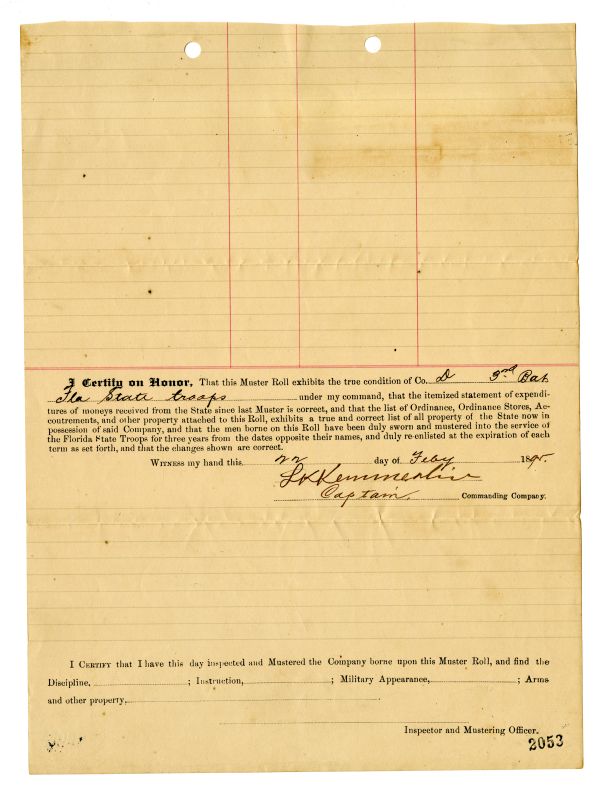 I Certify on Honor, That this Muster Roll exhibits the true condition of Co. D 3rd Bat
Fla State troops under my command, that the itemized statement of expendi-
tures of moneys received from the State since last Muster is correct, and that the list of Ordinance, Ordinance Stores, Ac-
coutrements, and other property attached to this Roll, exhibits a true and correct list of all property of the State now in
possession of said Company, and that the men borne on this Roll have been duly sworn and mustered into the service of
the Florida State Troops for three years from the dates opposite their names, and duly re-enlisted at the expiration of each
term as set forth, and that the changes shown are correct.
WITNESS my hand this 22 day of Feby 1895.
Captain, Commanding Company.
I CERTIFY that I have this day inspected and Mustered the Company borne upon this Muster Roll, and find the
Discipline, ; Instruction, ; Military Appearance, ; Arms
and other property,
Inspector and Mustering Officer.
2053